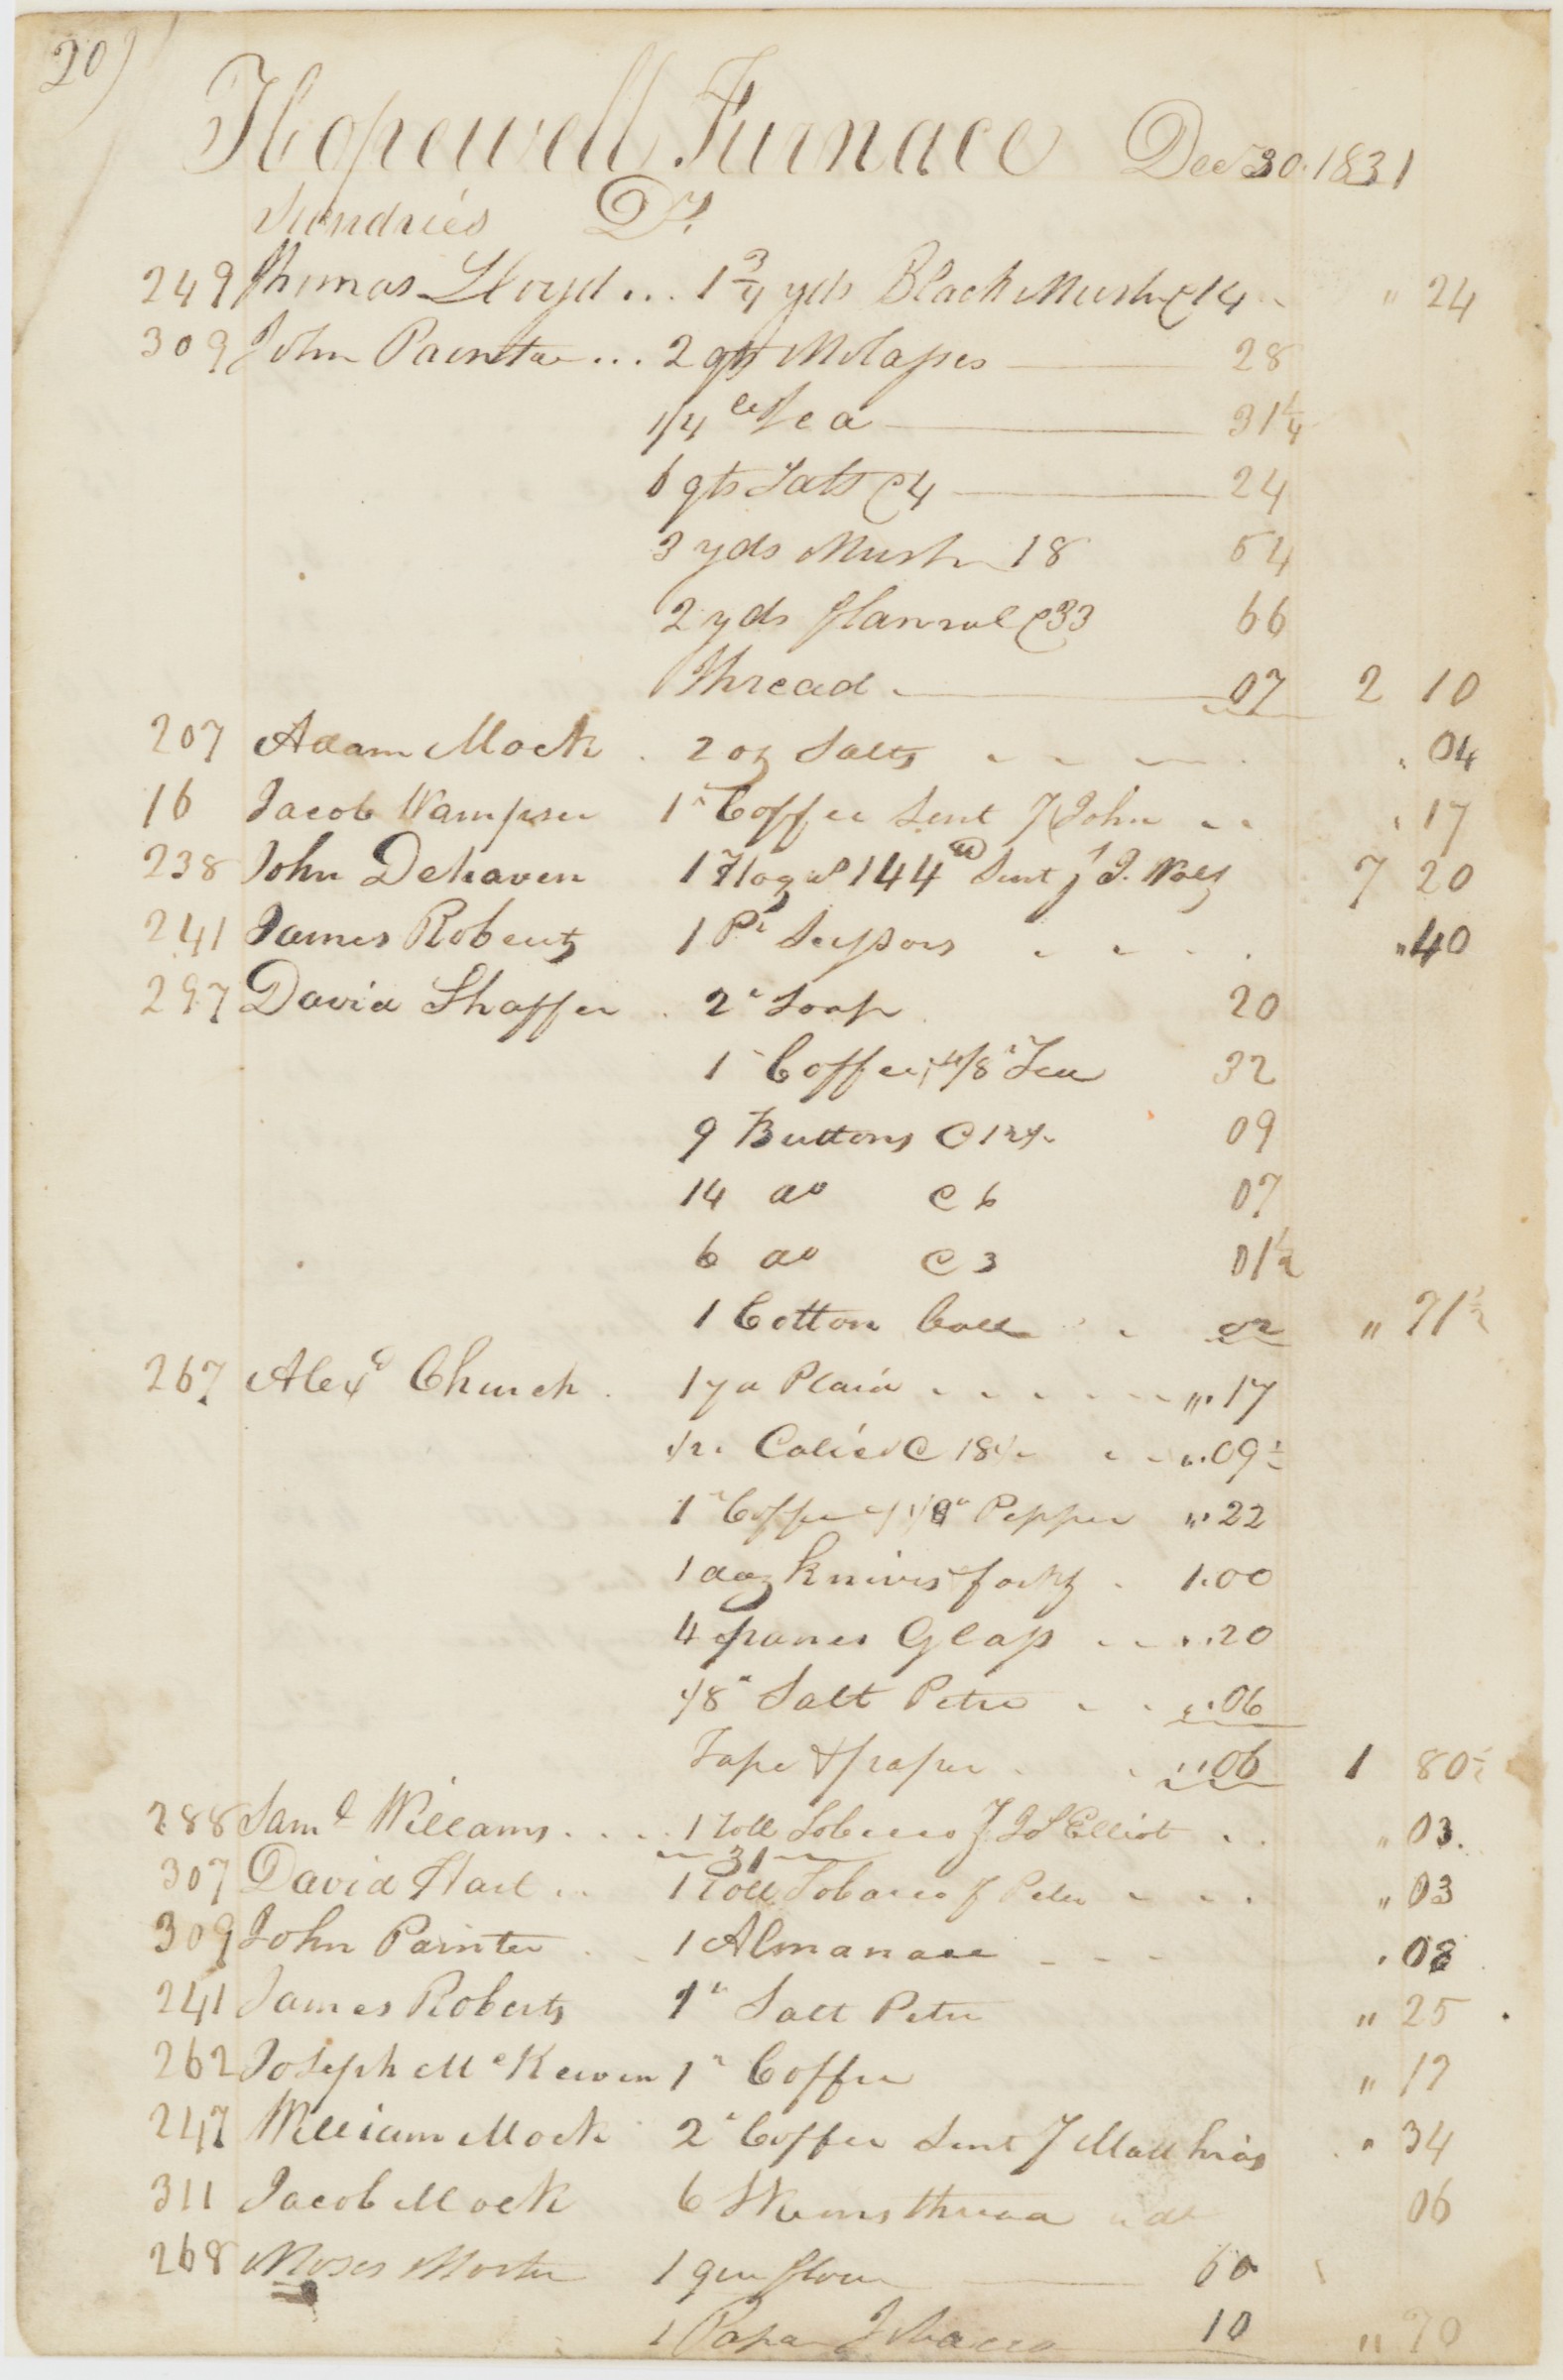 20)
Hopewell Furnace Dec 30. 1831
Sundries Dr.
249 Thomas Lloyd ... 1 3/4 yds Black Musln @ 14 " 24
309 John Painter ... 2 qts Molasses 28
1/4 lb Tea 31 1/4
6 qts Salt @ 4 24
3 yds Musln 18 54
2 yds flannel @ 33 66
Thread 07 2 10
207 Adam Mock . 2 oz Salts . 04
16 Jacob Wampser 1 " Coffee Sent John . 17
238 John Dehaven 1 Hog wt 144 lb Sent J. 7 20
241 James Roberts 1 Pr Scissors " 40
297 David Shaffer . 2 " Soap 20
1 " Coffee, 1/8 " Tea 32
9 Buttons @ 09
14 do @ 6 07
6 do @ 3 01 1/2
1 Cotton Ball 02 " 71 1/2
267 Alexd Church . 1 yd Plaid . . . . . "" 17
1/2 " Calico @ 18 "" 09 1/2
1 " Coffee 1/8 " Pepper "" 22
1 doz knives forks . 1.00
4 panes Glass . . . 20
1/8 " Salt Petre . . 06
Tape & paper . "" 06 1 80 1/2
288 Saml Willams . . . . 1 roll Tobacco Elliot . . " 03.
31
307 David Hart .. 1 roll Tobacco Peter " 03
309 John Painter . 1 Almanac . 08
241 James Roberts 1 " Salt Petre " 25
262 Joseph McKewen 1 " Coffee " 17
247 William Mock 2 " Coffee Sent Matthias " 34
311 Jacob Mock 6 Skeins thread 06
268 Moses 1 qur flour 60
1 Paper Tobacco 10 " 70